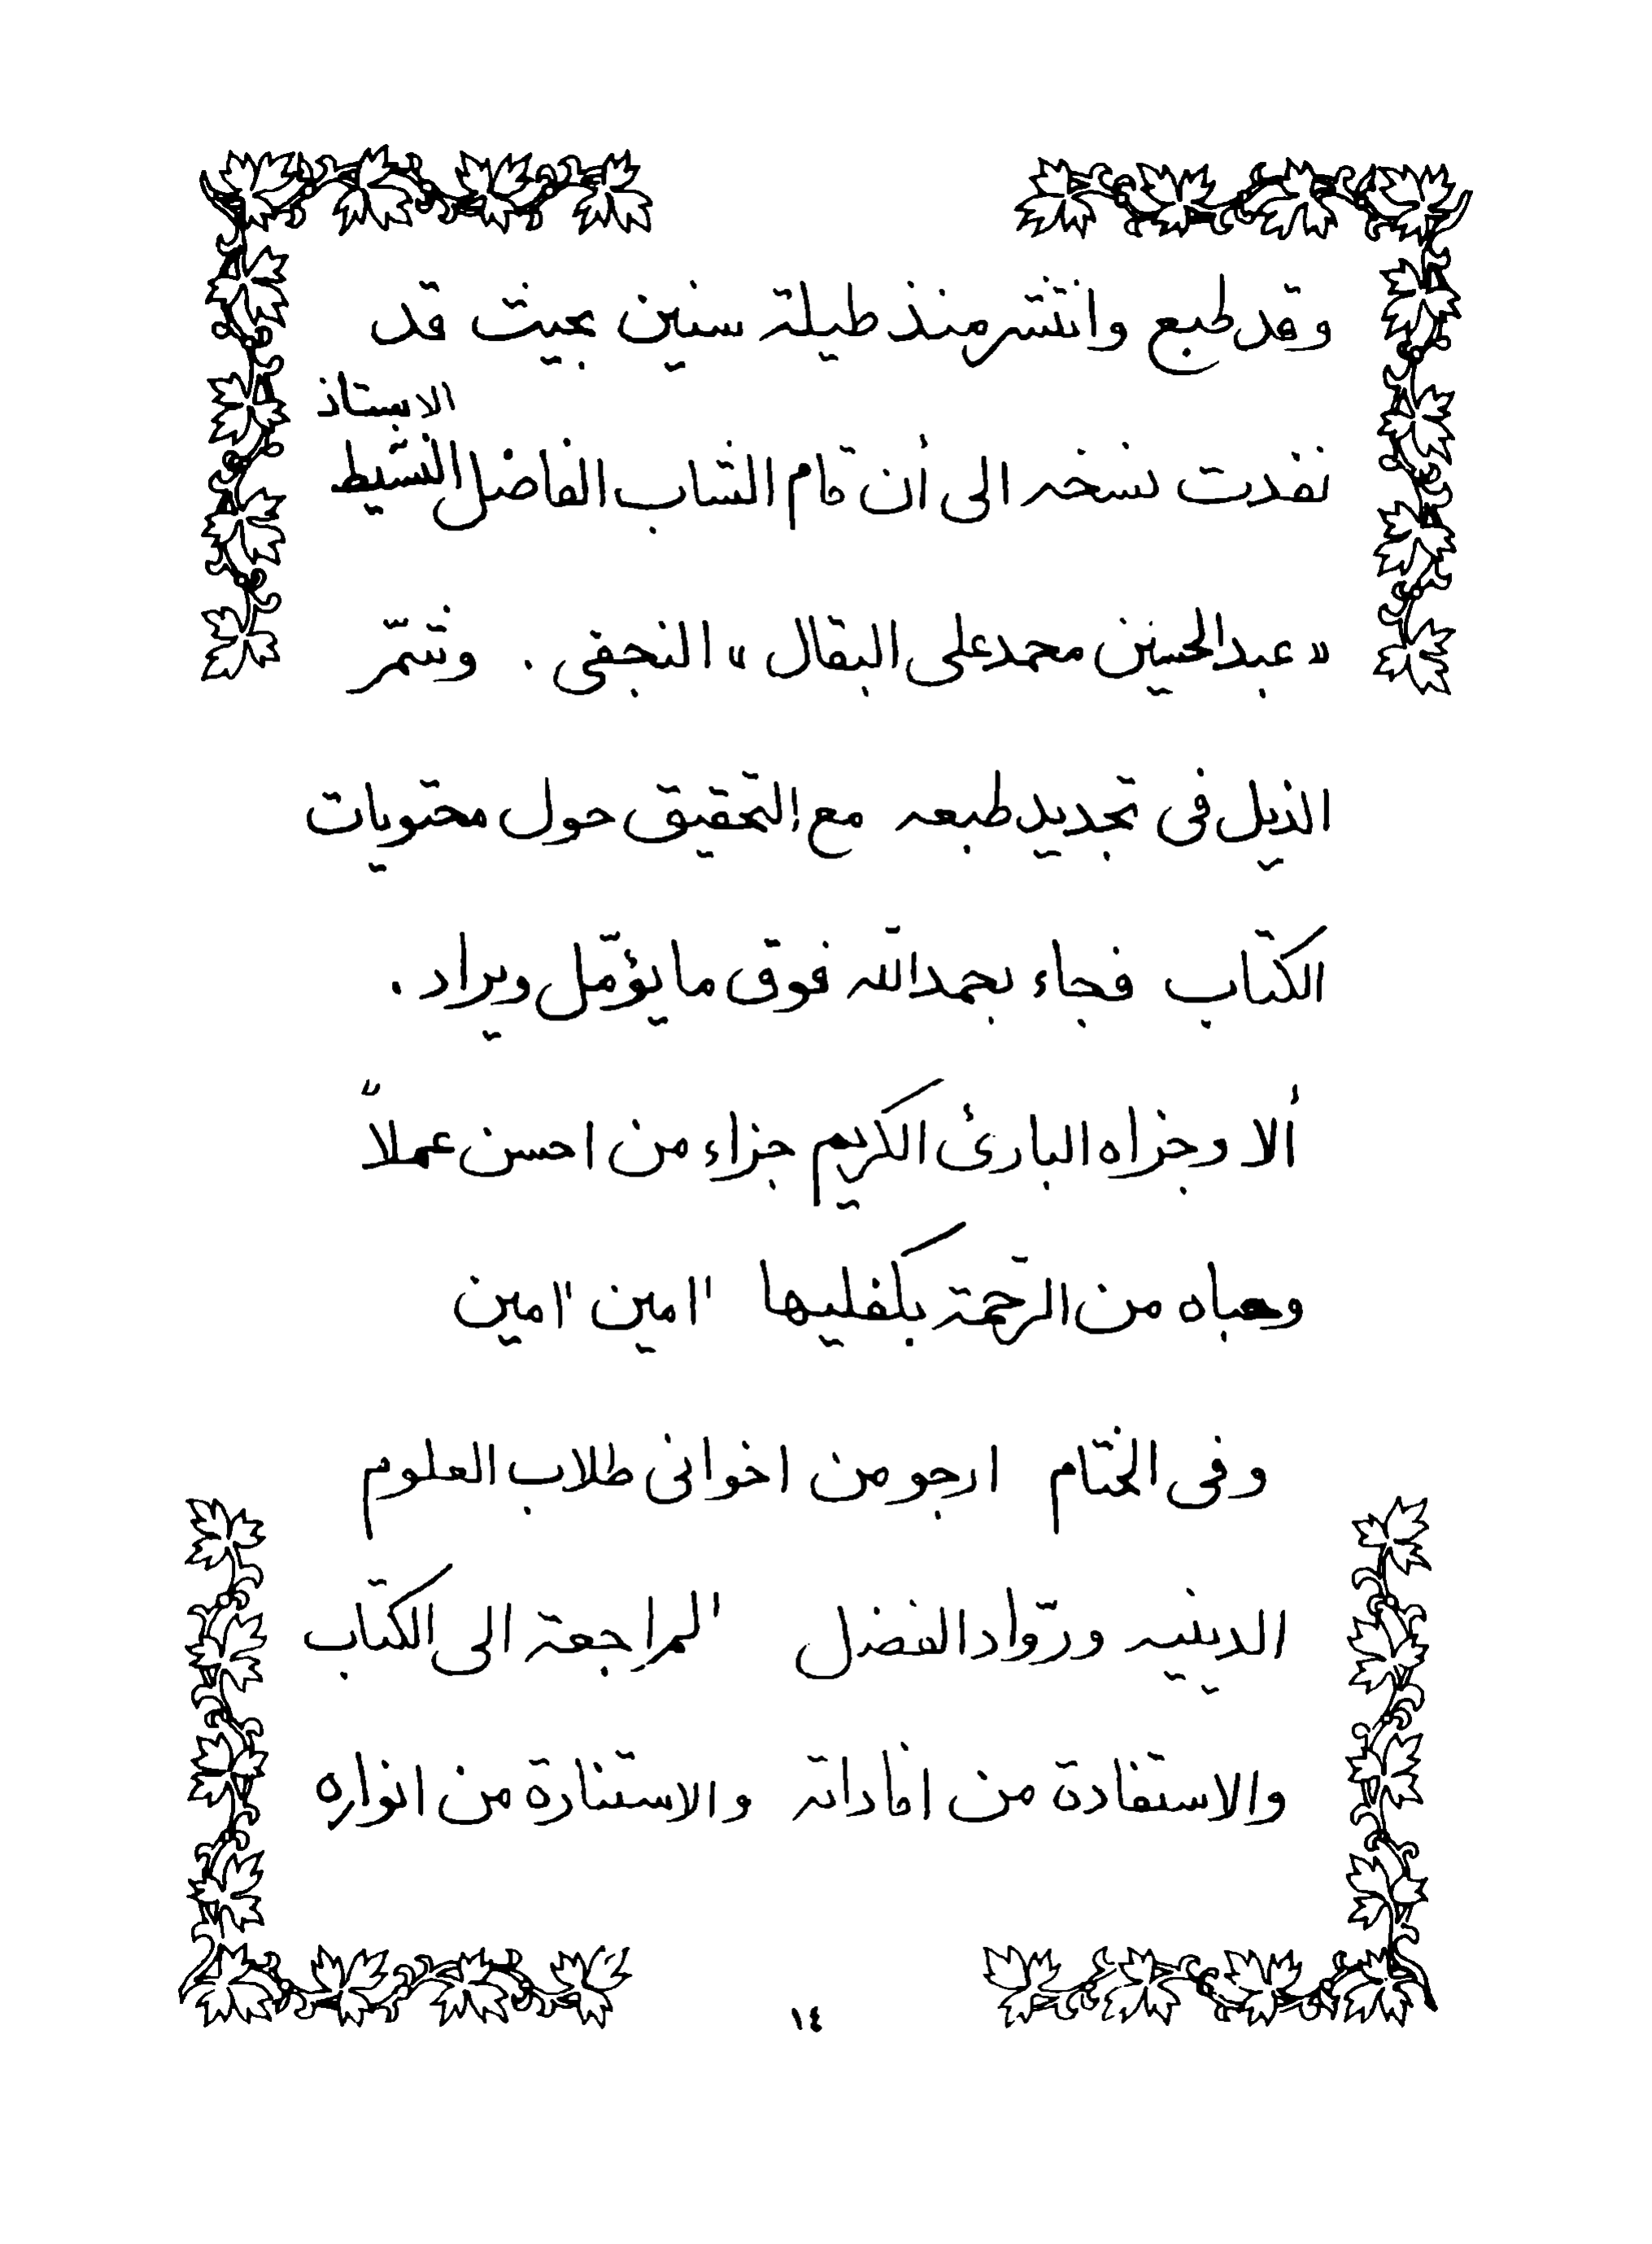 وقد طبع وانتشر منذ طيلة سنين بحيث قد
الاستاذ
نفدت نسخه الى أن قام الشاب الفاضل النشيط
« عبدالحسين محمدعلى البقال » النجفى . وشمّر
الذيل فى تجديد طبعه مع التحقيق حول محتويات
الكتاب فجاء بحمدالله فوق ما يؤمّل ويراد .
ألا وجزاه البارئ الكريم جزاء من احسن عملاً
وحباه من الرّحمة بكفليها امين امين
وفى الختام ارجو من اخوانى طلاب العلوم
الدينيه وروّاد الفضل المراجعة الى الكتاب
والاستفادة من افاداته والاستنارة من انواره
١٤